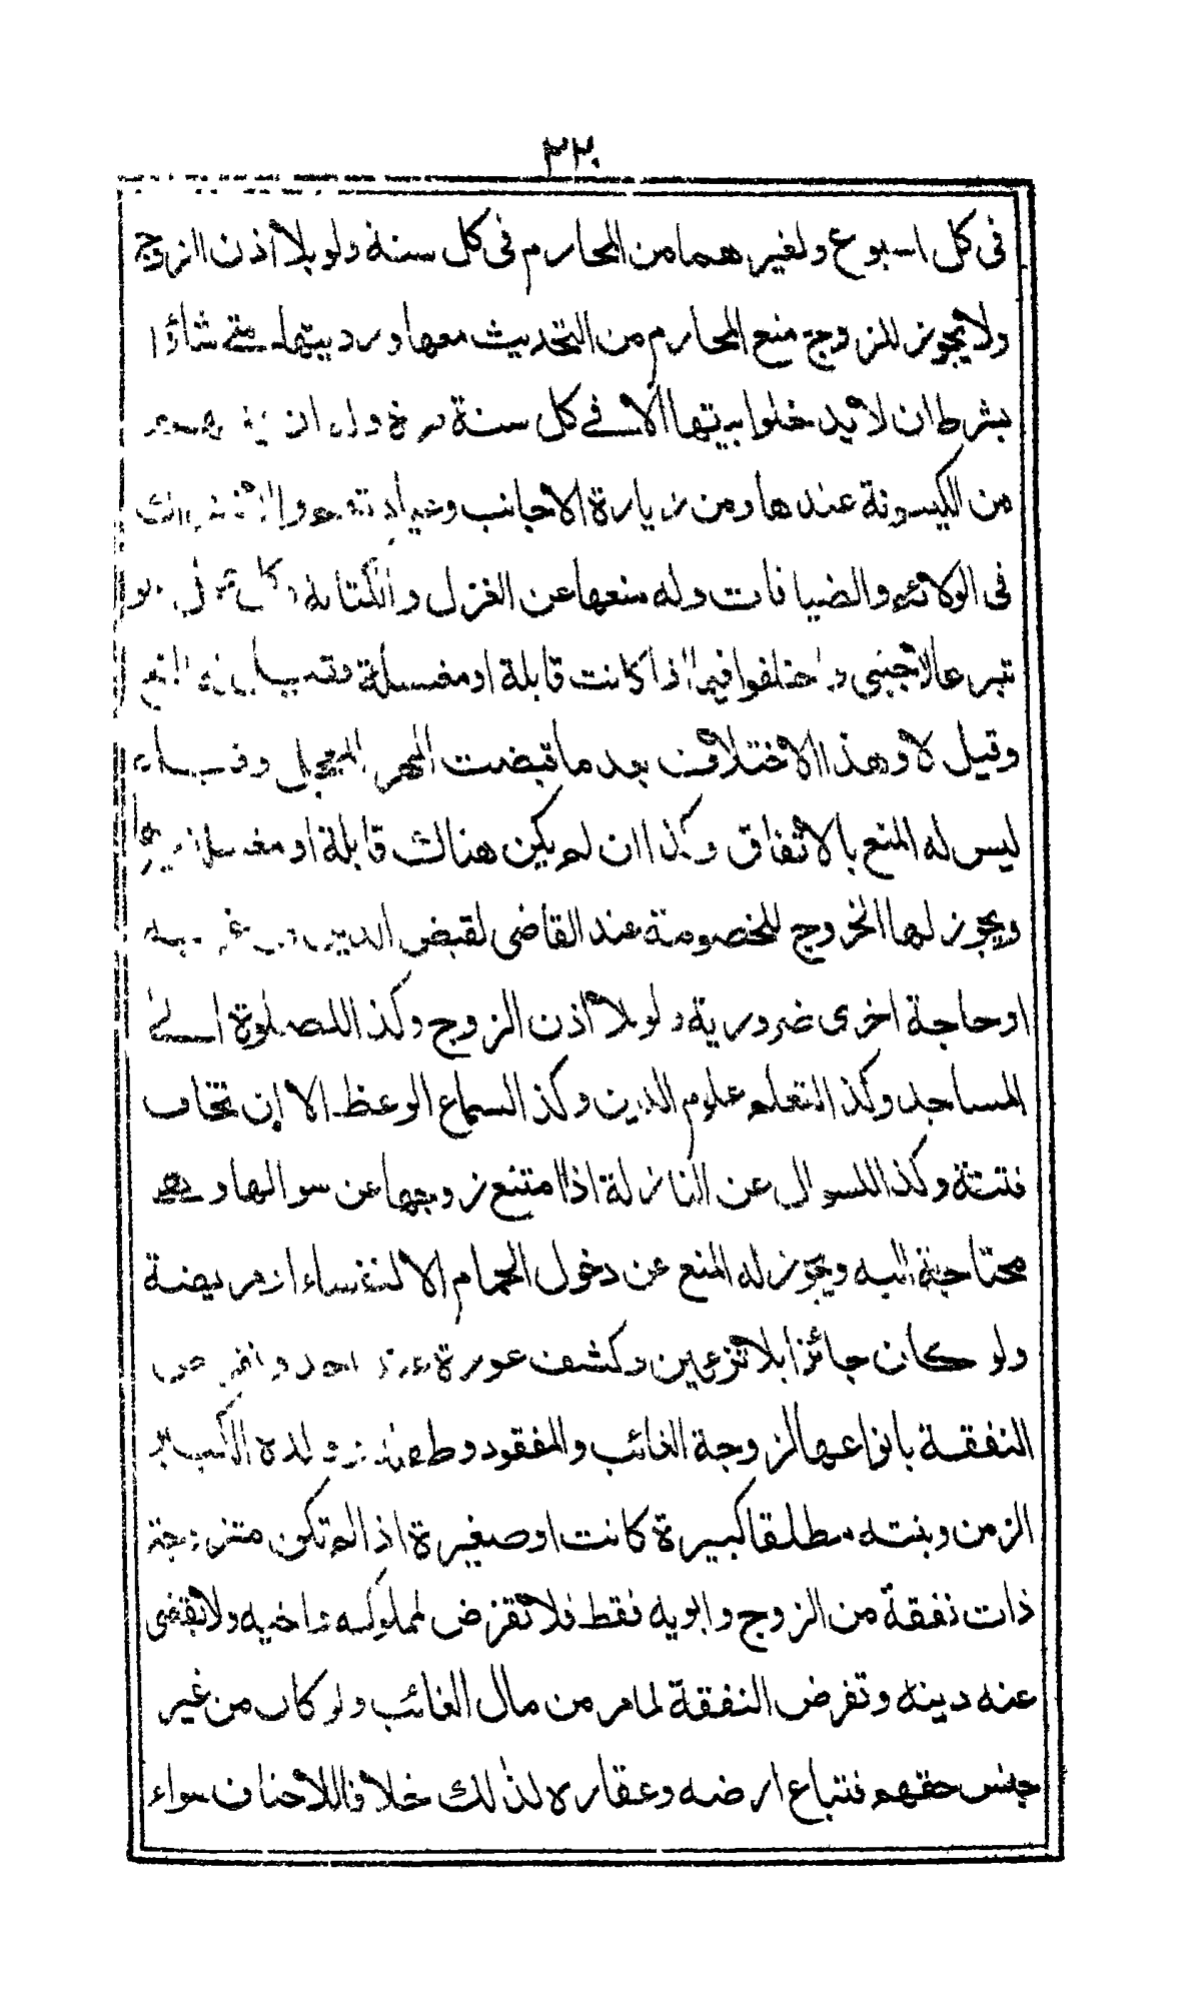 ٢٢٠
فى كل اسبوع ولغيرهما من المحارم فى كل سنة ولو بلا اذن الزوج
ولا يجوز للزوج منع المحارم من التحديث معها ورد بيتها متى شاؤا
بشرط ان لا يدخلوا بيتها الا فى كل سنة مرة وله ان
من الكينونة عندها ومن زيارة الاجانب وعيادتهم و
فى الولائم والضيافات وله منعها عن الغزل والكتابة
تبرعا لاجنبى واختلفوا فيما اذا كانت قابلة او مغسلة فقيل له المنع
وقيل لا وهذا الاختلاف بعد ما قبضت المهر المعجل و
ليس له المنع بالاتفاق وكذا ان لم يكن هناك قابلة او مغسلة
ويجوز لها الخروج للخصومة عند القاضى لقبض الدين
او حاجة اخرى ضرورية ولو بلا اذن الزوج وكذا للصلوة الى
المساجد وكذا لتعلم علوم الدين وكذا لسماع الوعظ الا ان تخاف
فتنة وكذا للسوال عن النازلة اذا امتنع زوجها عن سوالها وهى
محتاجة اليه ويجوز له المنع عن دخول الحمام الا لنفساء او مريضة
ولو كان جائزا بلا تزيين وكشف عورة عند احد
النفقة بانواعها لزوجة الغائب والمفقود وطفله وولده الكبير
الزمن وبنته مطلقا كبيرة كانت او صغيرة اذا لم تكن متزوجة
ذات نفقة من الزوج وابويه فقط فلا تفرض لمملوكه واخيه ولا يقضى
عنه دينه وتفرض النفقة لما مر من مال الغائب ولو كان من غير
جنس حقهم فتباع ارضه وعقاره لذلك خلافا للاحناف سواء